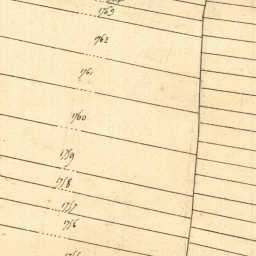 1763
1762
1761
1760
1759
1758
1757
1756